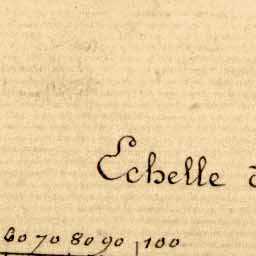 Echelle
60 70 80 90 100